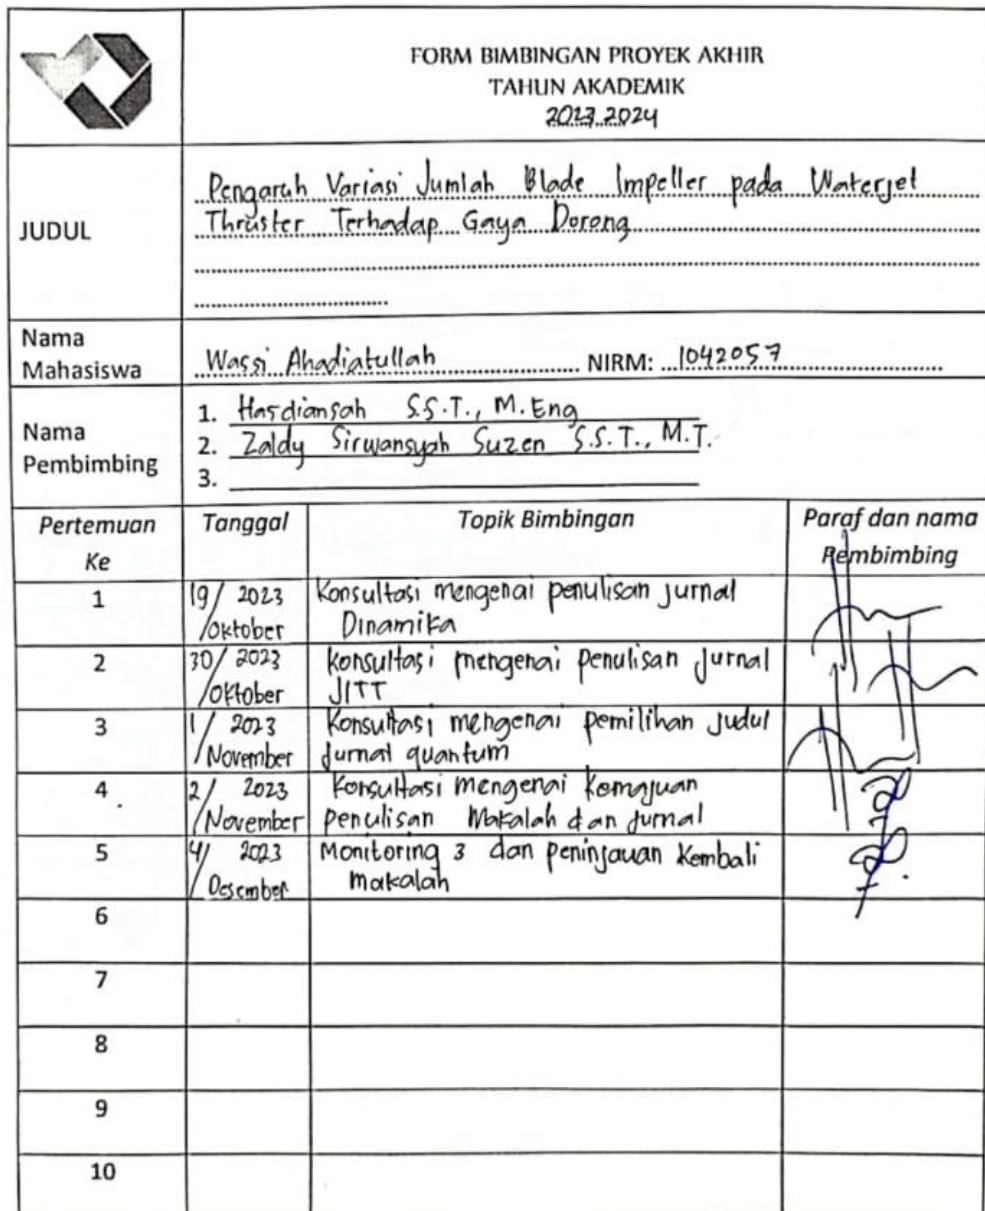 FORM BIMBINGAN PROYEK AKHIR
TAHUN AKADEMIK
2023.2024
JUDUL
Pengaruh Variasi Jumlah Blade Impeller pada Waterjet
Thruster Terhadap Gaya Dorong
Nama
Mahasiswa
Wassi Ahadiatullah NIRM: 1042057
Nama
Pembimbing
1. Hasdiansah S.S.T., M.Eng
2. Zaldy Sirwansyah Suzen S.S.T., M.T.
3.
Pertemuan
Ke
Tanggal
Topik Bimbingan
Paraf dan nama
Pembimbing
1
19/ 2023
/Oktober
Konsultasi mengenai penulisan jurnal
Dinamika
2
30/ 2023
/Oktober
Konsultasi mengenai penulisan Jurnal
JITT
3
1/ 2023
/November
Konsultasi mengenai pemilihan judul
Jurnal quantum
4
2/ 2023
/November
Konsultasi mengenai Kemajuan
penulisan Makalah dan Jurnal
5
4/ 2023
/Desember
Monitoring 3 dan peninjauan Kembali
makalah
6
7
8
9
10